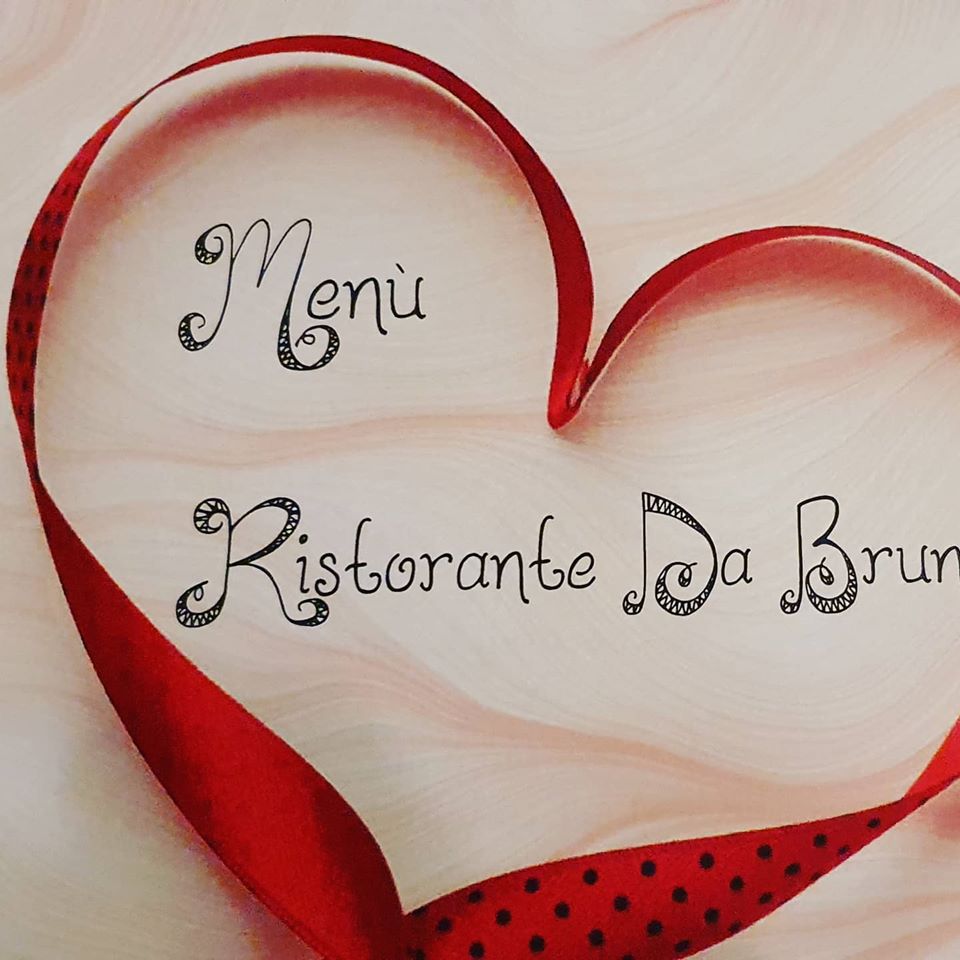 Menù
Ristorante Da Brun